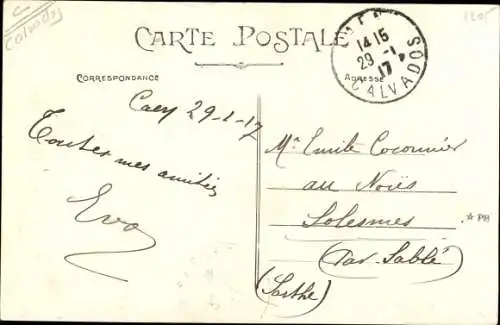 C
Calvados
1205
CARTE POSTALE
CAEN
14 15
29 -1
17
CALVADOS
CORRESPONDANCE
ADRESSE
Caen 29-1-17
Toutes mes amitiés
Eva
Mr Emile Cocounier
au Noïs
Solesmes
(Par Sablé)
(Sarthe)
★ PH